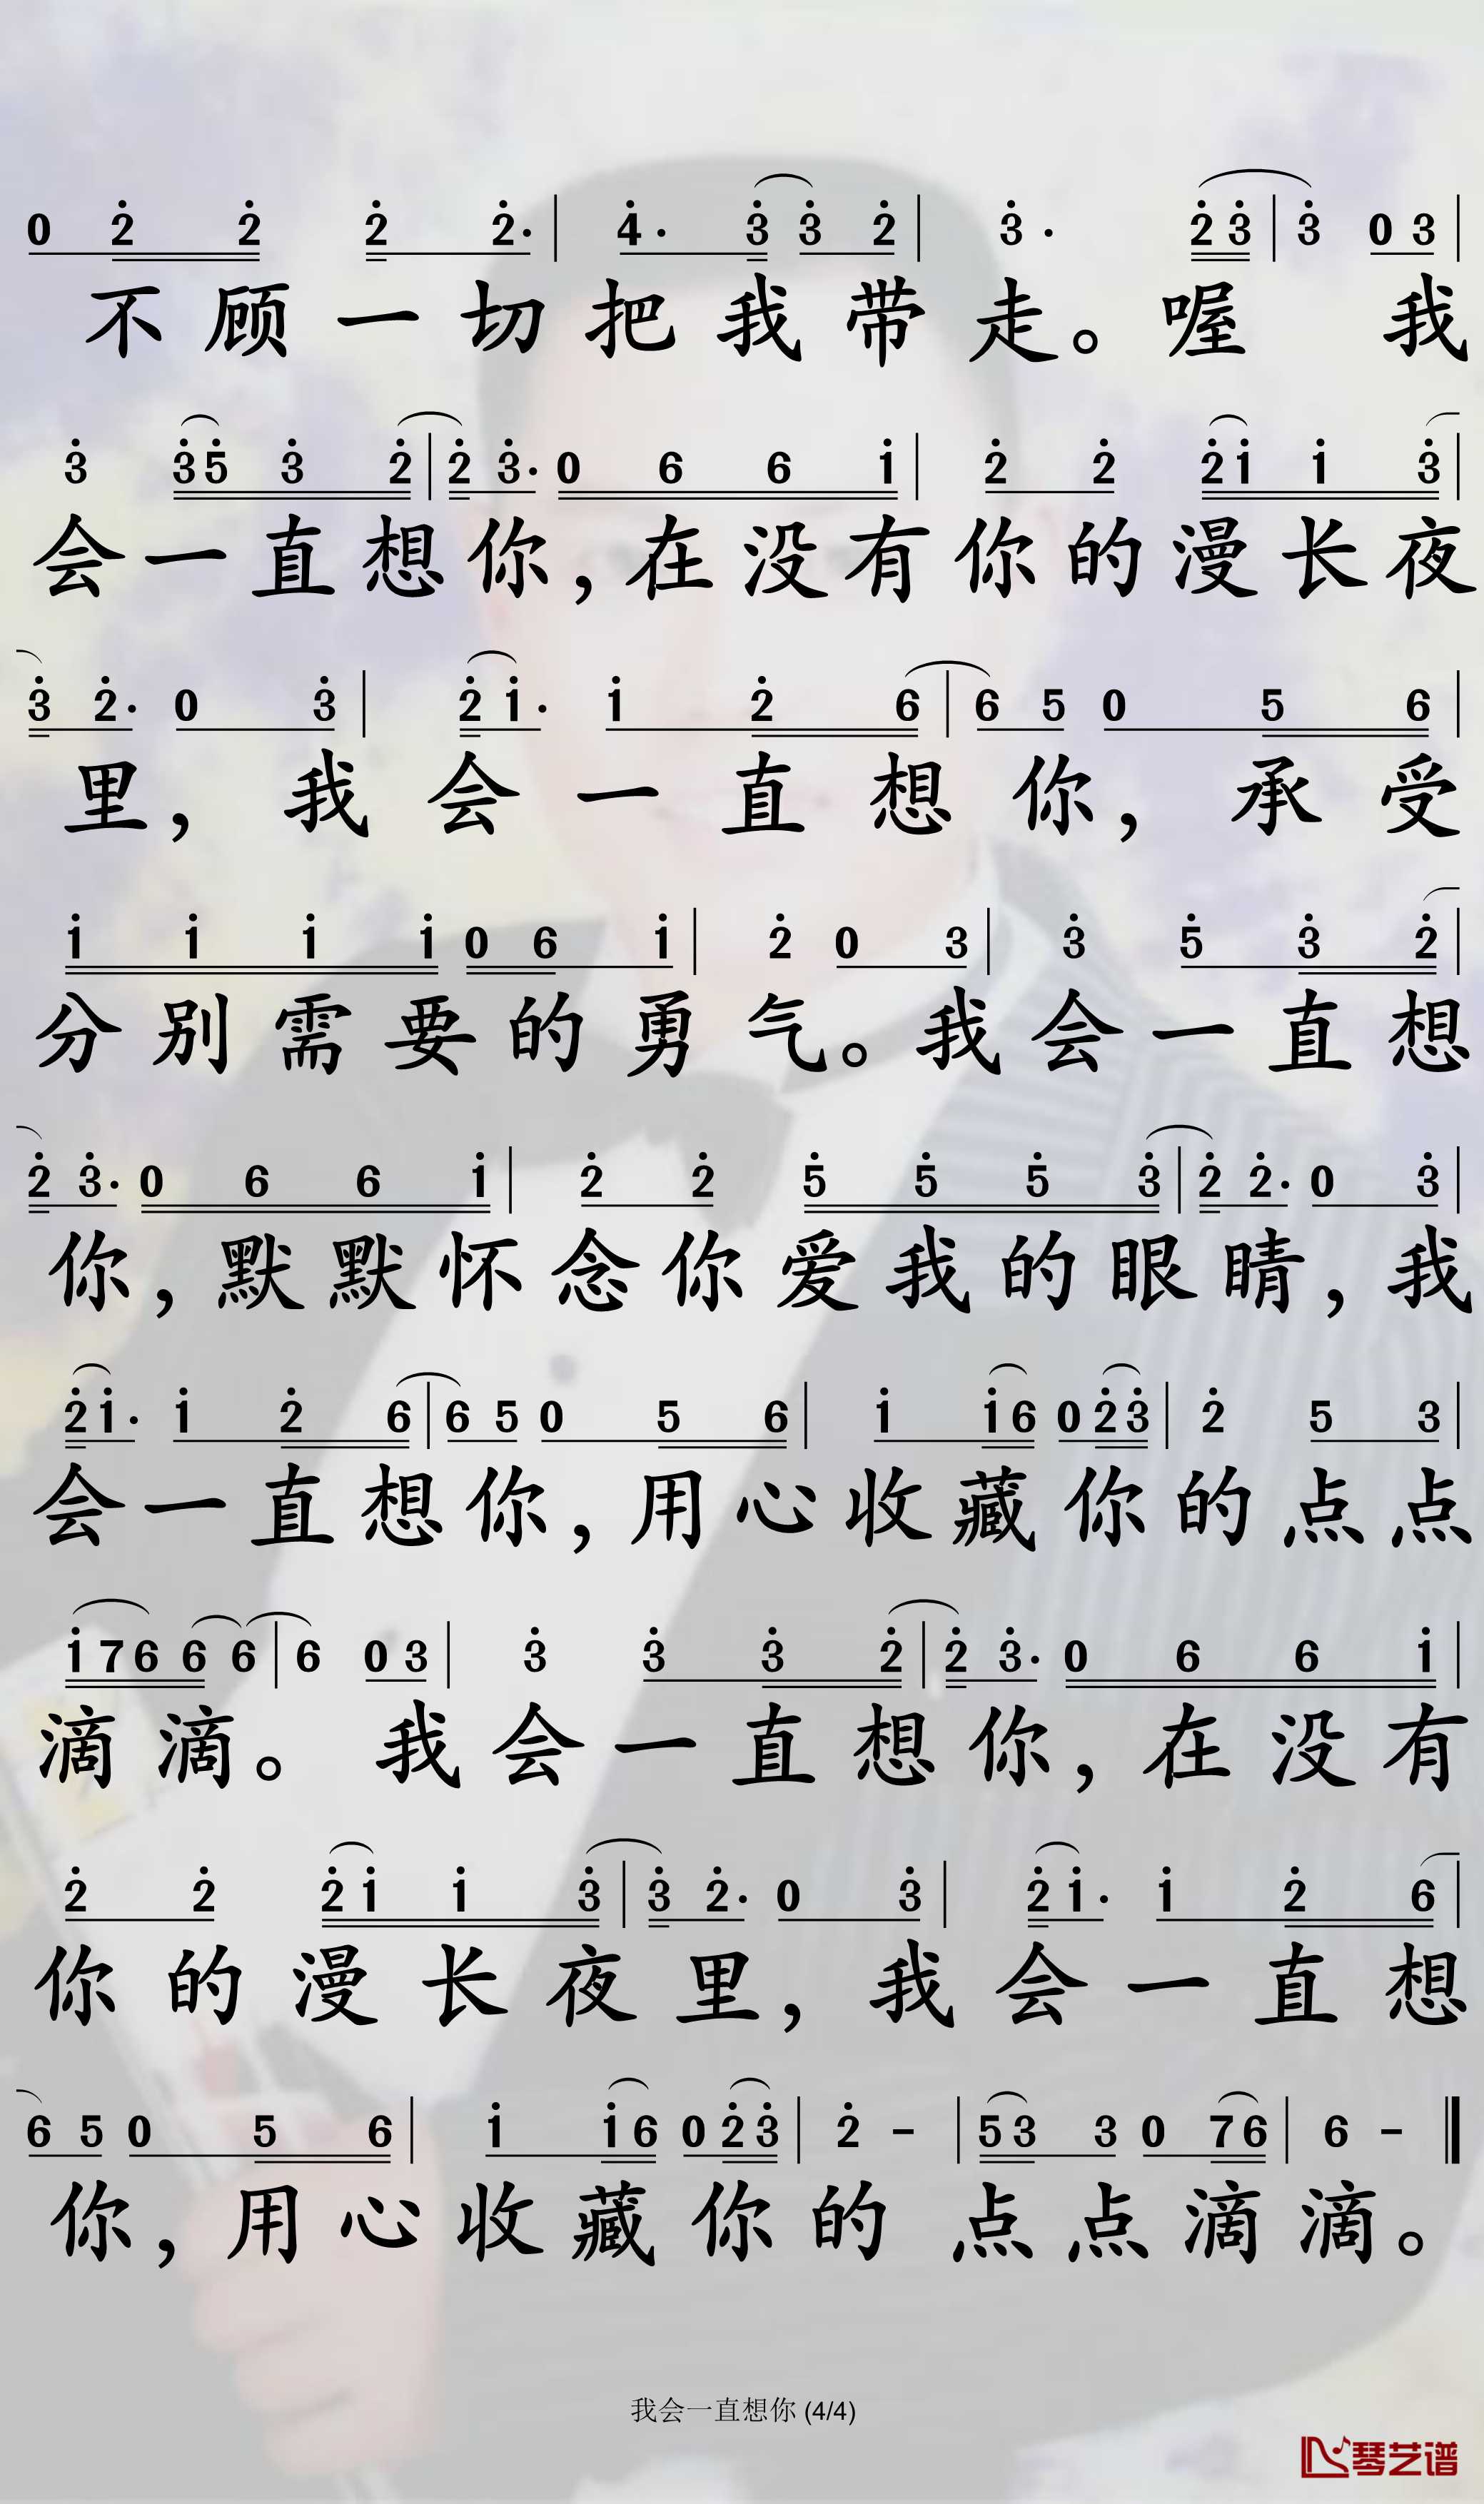 0 2̇ 2̇ 2̇ 2̇· | 4̇· 3̇ 3̇ 2̇ | 3̇· 2̇ 3̇ | 3̇ 0 3 |
不顾一切把我带走。喔 我
3̇ 3̇ 5̇ 3̇ 2̇ | 2̇ 3̇· 0 6 6 1̇ | 2̇ 2̇ 2̇ 1̇ 1̇ 3̇ |
会一直想你,在没有你的漫长夜
3̇ 2̇· 0 3̇ | 2̇ 1̇· 1̇ 2̇ 6 | 6 5 0 5 6 |
里,我会一直想你,承受
1̇ 1̇ 1̇ 1̇ 0 6 1̇ | 2̇ 0 3 | 3̇ 5̇ 3̇ 2̇ |
分别需要的勇气。我会一直想
2̇ 3̇· 0 6 6 1̇ | 2̇ 2̇ 5̇ 5̇ 5̇ 3̇ | 2̇ 2̇· 0 3̇ |
你,默默怀念你爱我的眼睛,我
2̇ 1̇· 1̇ 2̇ 6 | 6 5 0 5 6 | 1̇ 1̇ 6 0 2̇ 3̇ | 2̇ 5 3 |
会一直想你,用心收藏你的点点
1̇ 7 6 6 6 | 6 0 3 | 3̇ 3̇ 3̇ 2̇ | 2̇ 3̇· 0 6 6 1̇ |
滴滴。我会一直想你,在没有
2̇ 2̇ 2̇ 1̇ 1̇ 3̇ | 3̇ 2̇· 0 3̇ | 2̇ 1̇· 1̇ 2̇ 6 |
你的漫长夜里,我会一直想
6 5 0 5 6 | 1̇ 1̇ 6 0 2̇ 3̇ | 2̇ - | 5 3 3 0 7 6 | 6 - ‖
你,用心收藏你的 点点滴滴。
我会一直想你 (4/4)
琴艺谱